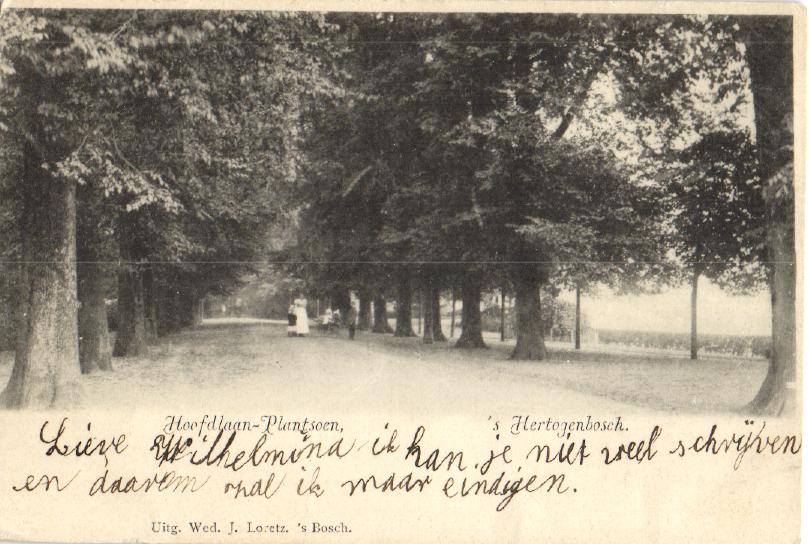 Hoofdlaan-Plantsoen, 's Hertogenbosch.
Lieve Wilhelmina ik kan je niet veel schrijven
en daarom zal ik maar eindigen.
Uitg. Wed. J. Loretz. 's Bosch.